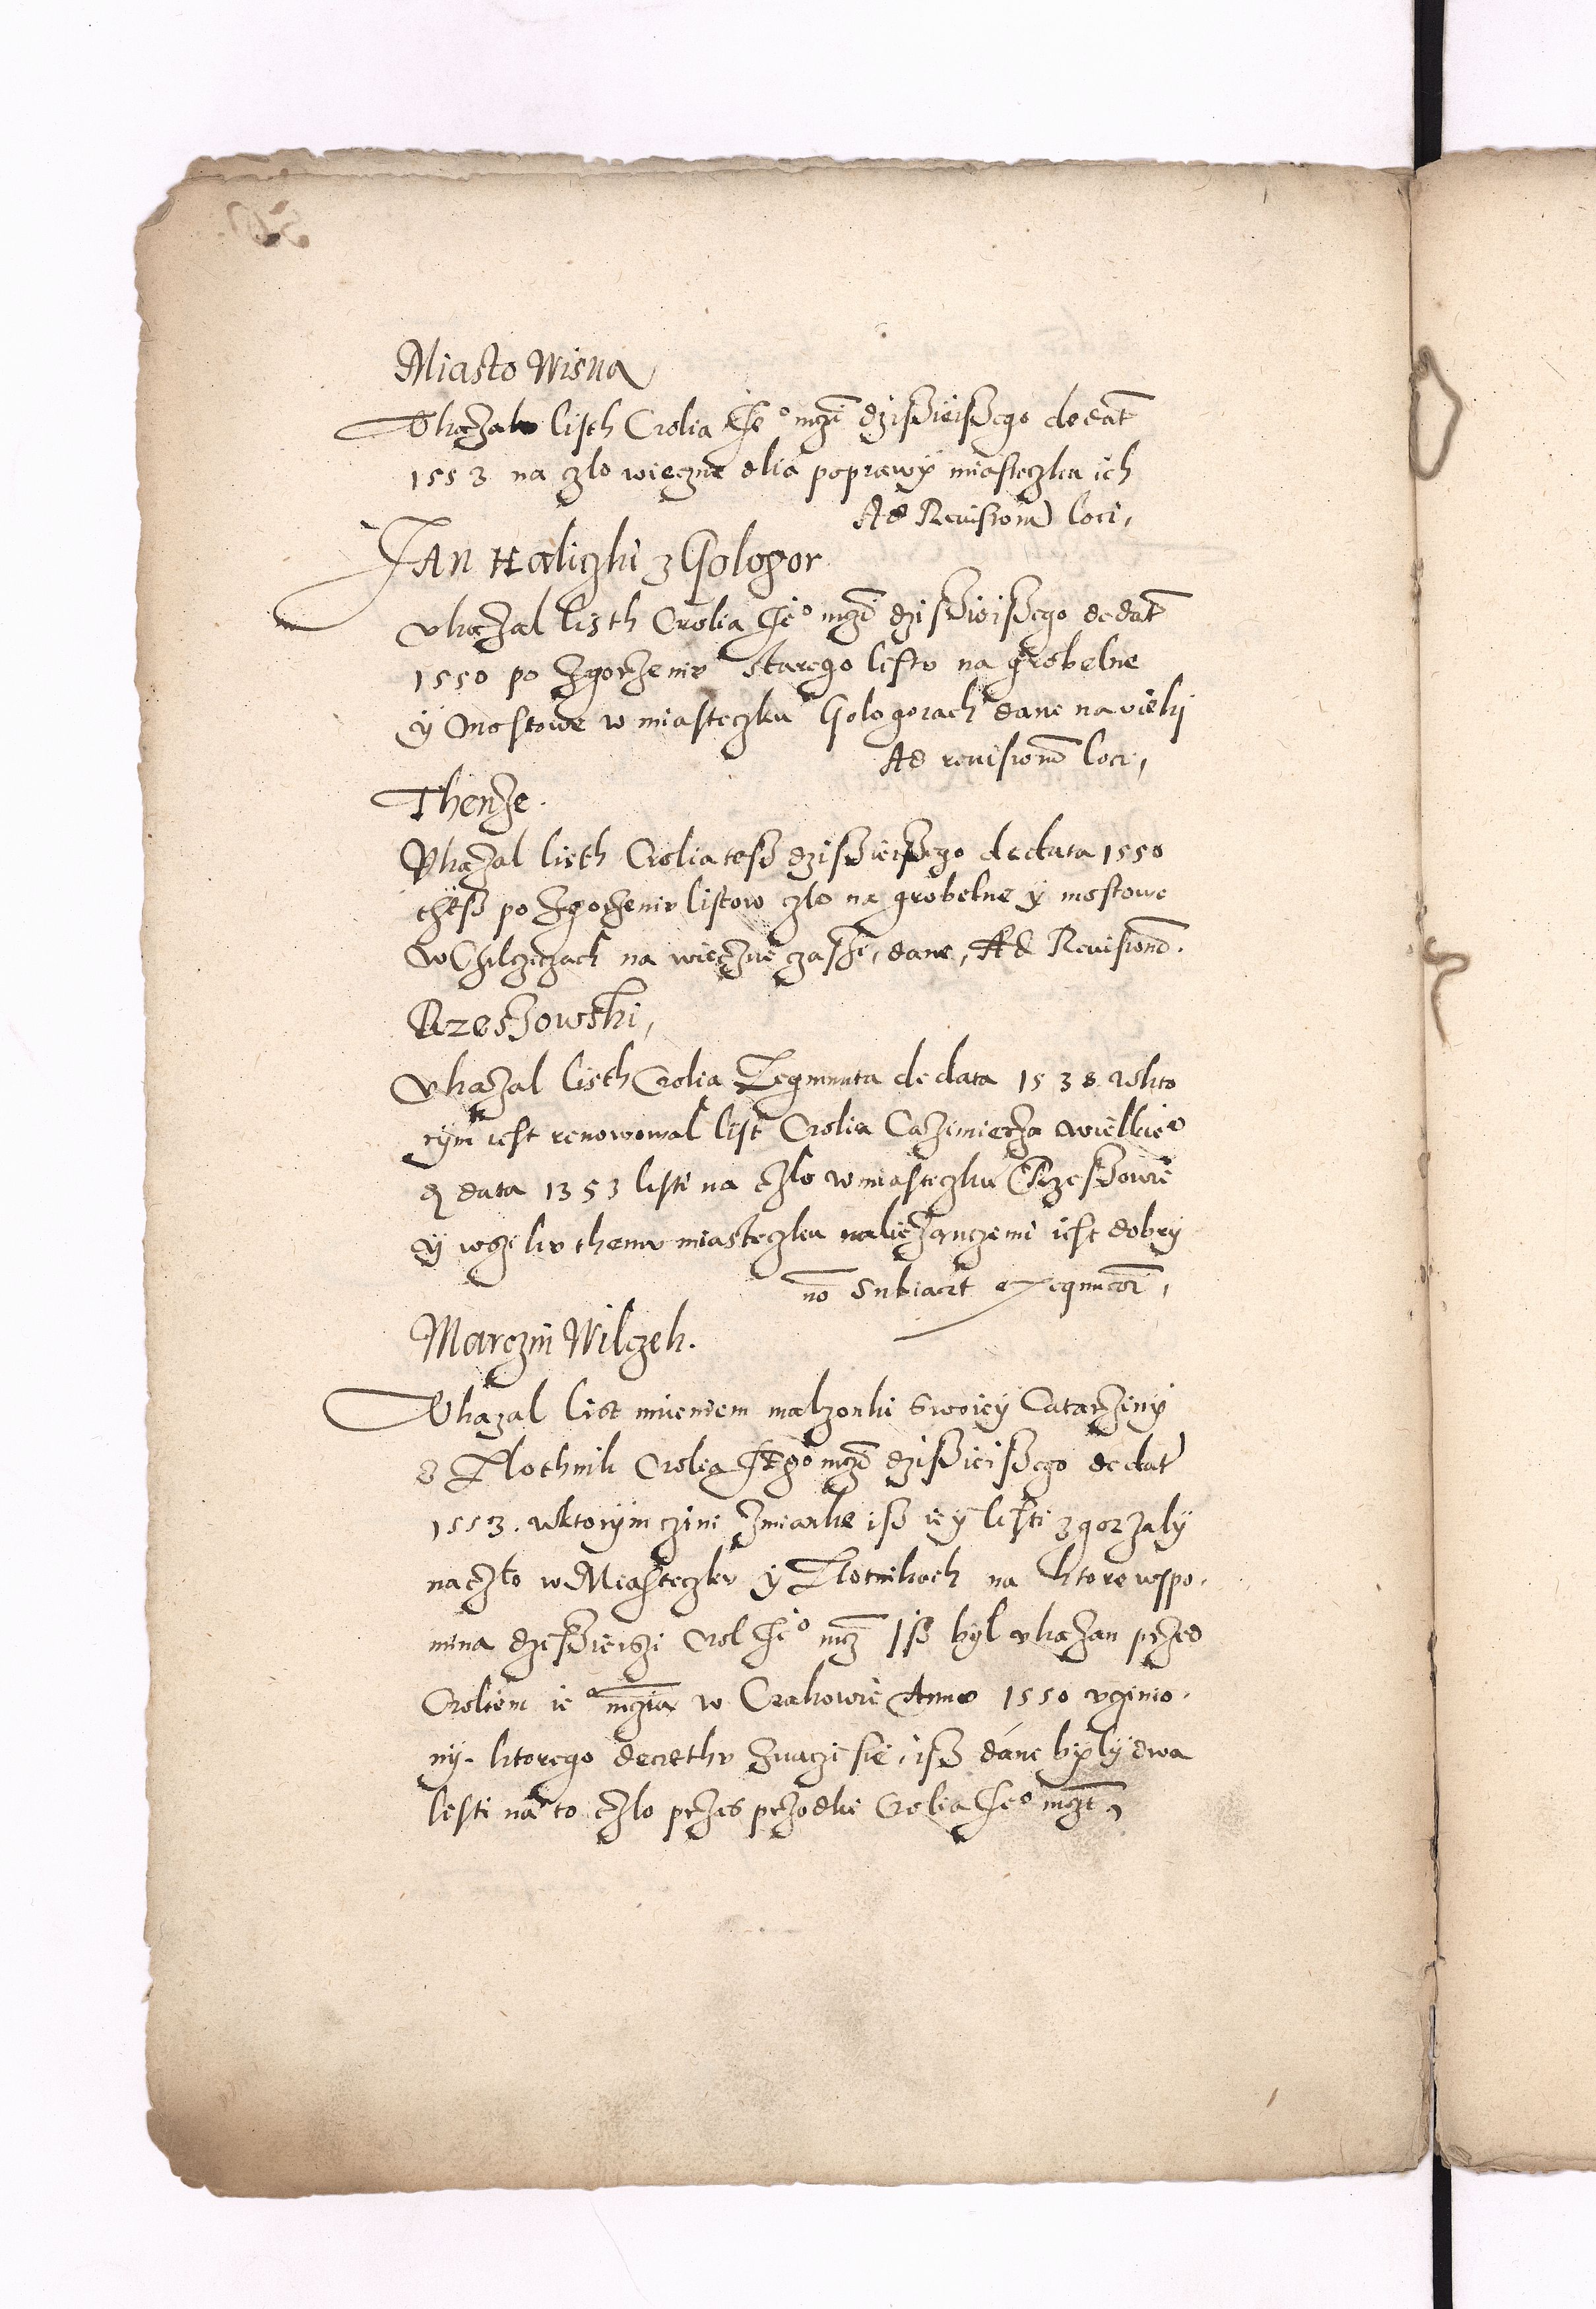 Miasto Wisna
Vkazalo listh Crolia Je° mczi dzisieiszego de dat
1553 na czlo wieczne dlia poprawy miasteczka ich
Ad Revisionem loci,
JAN Haliczki z Gologor
vkazal listh Crolia Je° mczi dzisieiszego de dat
1550 po zgorzeniv starego listv na grobelne
y mostowe w miasteczku Gologorach dane na vieki
Ad revisionem loci,
Thenze.
Vkazal listh Crolia tesz dzisieiszego de data 1550
thesz po zgorzeniv listow czlo na grobelne y mostowe
na wieczne czasse, dane, Ad Revisionem.
Rzeszowski,
vkazal listh Crolia Zegmunta de data 1538 wkto
rym iest renowowal list Crolia Cazimierza wielkie°
data 1353 listi na czlo w miasteczku Rzeszowie
y wszi kv themv miasteczku naliezanczemi iest dobry
no subiacet exequucori,
Marczin Wilczek.
Vkazal list imieniem malzonki swoiey Catarziny
z Zlothnik Crolia Jego mczi dzisieiszego de dat
1553. wktorym czini zmianke isz iey listi zgorzaly
na czlo w Miasteczkv y Zlotnikach na ktore wspo-
mina dzisieiszi Crol Je° mcz Isz byl vkazan przed
Croliem ie° mczia w Crakowie Anno 1550 vczinio-
ny. ktorego decrethv znaczi sie, isz dane byly dwa
listi na to czlo przes przodki Crolia Je° mczi,